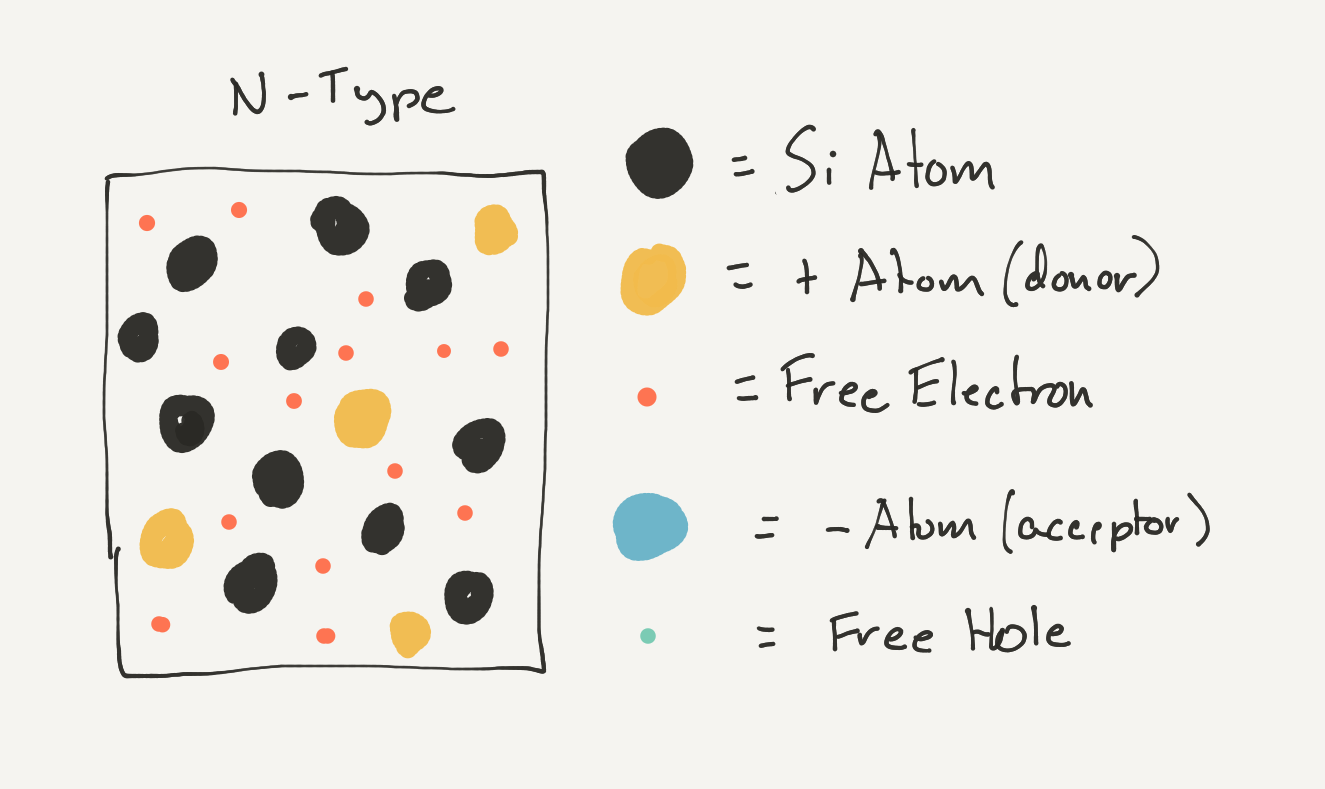 N-Type
= Si Atom
= + Atom (donor)
= Free Electron
= - Atom (acceptor)
= Free Hole